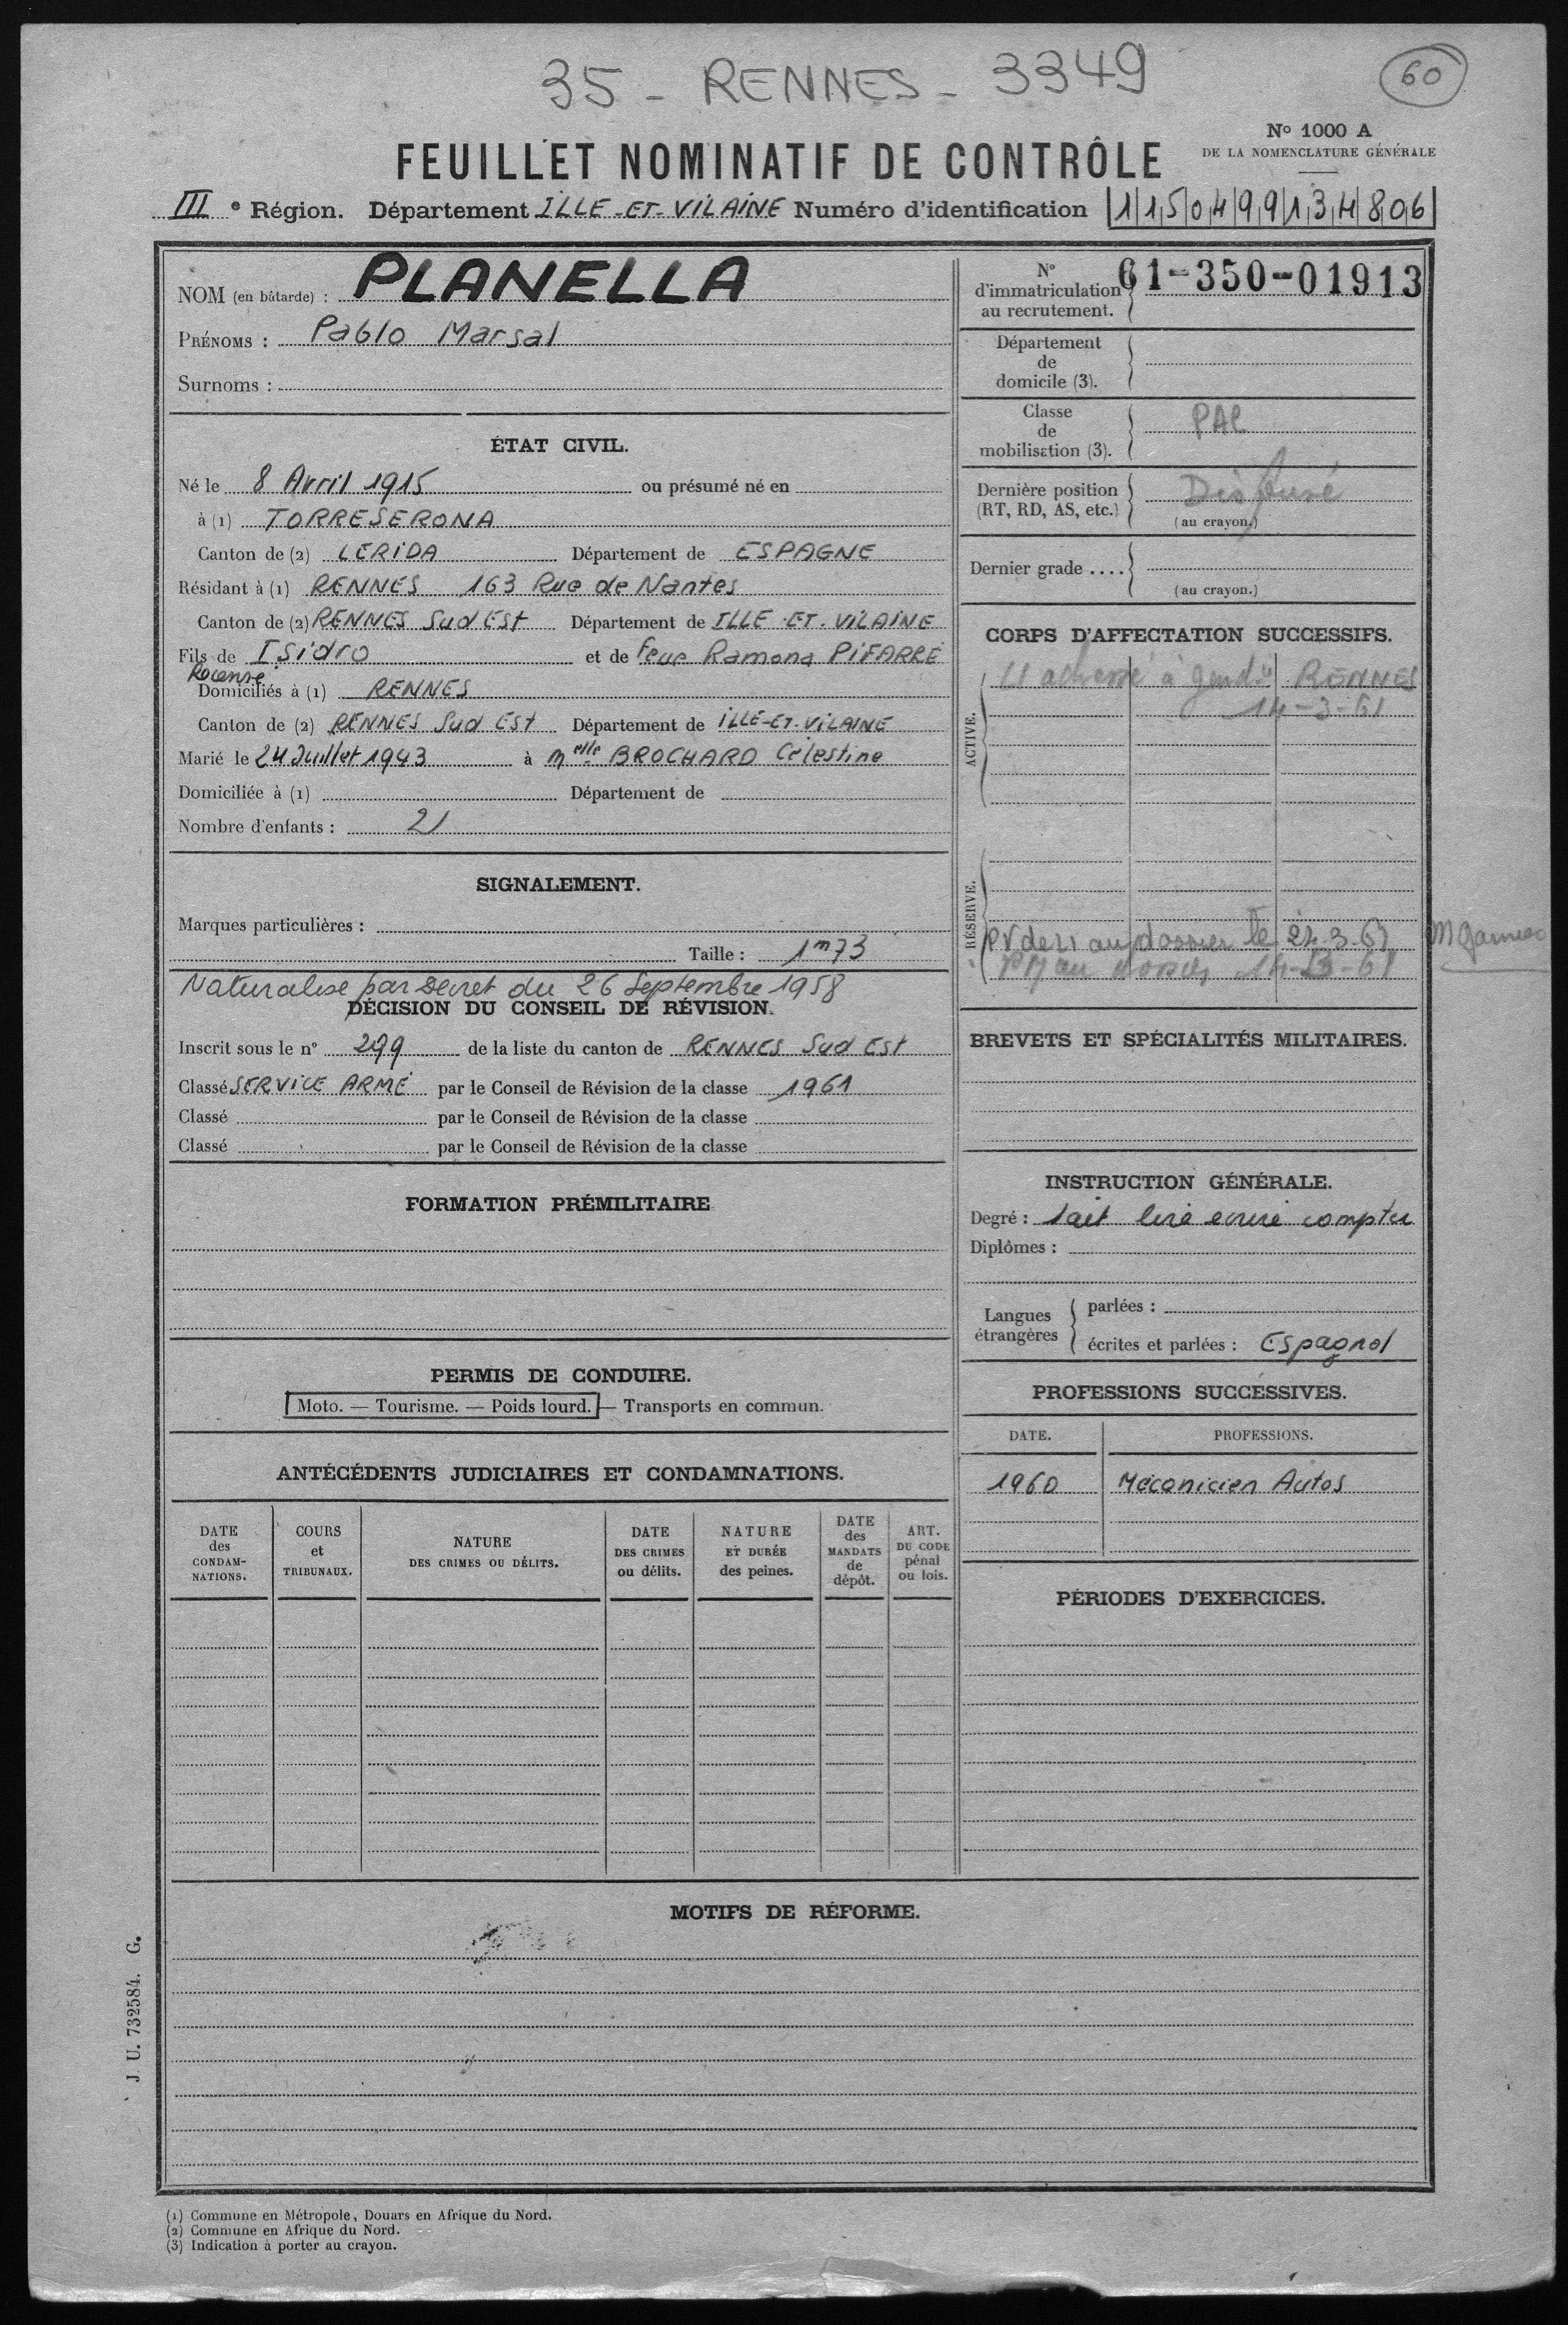 35 - RENNES - 3349
60
N° 1000 A
DE LA NOMENCLATURE GÉNÉRALE
FEUILLET NOMINATIF DE CONTRÔLE
III e Région. Département ILLE-ET-VILAINE Numéro d'identification 1150499134806
NOM (en bâtarde) : PLANELLA
PRÉNOMS : Pablo Marsal
Surnoms :
ÉTAT CIVIL.
Né le 8 Avril 1915 ou présumé né en
à (1) TORRESERONA
Canton de (2) LERIDA Département de ESPAGNE
Résidant à (1) RENNES 163 Rue de Nantes
Canton de (2) RENNES Sud Est Département de ILLE-ET-VILAINE
Fils de Isidro et de feue Ramona PIFARRE
Recensé
Domiciliés à (1) RENNES
Canton de (2) RENNES Sud Est Département de ILLE-ET-VILAINE
Marié le 24 Juillet 1943 à Melle BROCHARD Célestine
Domiciliée à (1) Département de
Nombre d'enfants : 2
SIGNALEMENT.
Marques particulières :
Taille : 1m73
Naturalisé par Decret du 26 Septembre 1958
DÉCISION DU CONSEIL DE RÉVISION.
Inscrit sous le n° 299 de la liste du canton de RENNES Sud Est
Classé SERVICE ARMÉ par le Conseil de Révision de la classe 1961
Classé par le Conseil de Révision de la classe
Classé par le Conseil de Révision de la classe
FORMATION PRÉMILITAIRE
PERMIS DE CONDUIRE.
Moto. — Tourisme. — Poids lourd. — Transports en commun.
ANTÉCÉDENTS JUDICIAIRES ET CONDAMNATIONS.
DATE des CONDAMNATIONS.
COURS et TRIBUNAUX.
NATURE DES CRIMES OU DÉLITS.
DATE DES CRIMES ou délits.
NATURE ET DURÉE des peines.
DATE des MANDATS de dépôt.
ART. DU CODE pénal ou lois.
N° d'immatriculation au recrutement. 61-350-01913
Département de domicile (3).
Classe de mobilisation (3). PAL
Dernière position (RT, RD, AS, etc.)
(au crayon.)
Dernier grade ....
(au crayon.)
CORPS D'AFFECTATION SUCCESSIFS.
ACTIVE.
à Gend RENNES
14-3-61
RÉSERVE.
PV de au dossier le 24-3-61
14-3-61
BREVETS ET SPÉCIALITÉS MILITAIRES.
INSTRUCTION GÉNÉRALE.
Degré : sait lire écrire compter
Diplômes :
Langues étrangères
parlées :
écrites et parlées : Espagnol
PROFESSIONS SUCCESSIVES.
DATE. PROFESSIONS.
1960 Mécanicien Autos
PÉRIODES D'EXERCICES.
MOTIFS DE RÉFORME.
J U. 732584. G.
(1) Commune en Métropole, Douars en Afrique du Nord.
(2) Commune en Afrique du Nord.
(3) Indication à porter au crayon.